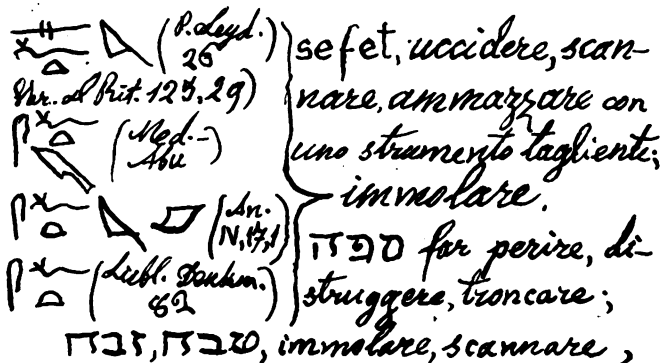 (P. Leyd.
26
Var. al Rit. 125, 29)
(Med.-
Abu)
(An.
IV, 17, 1)
(Lubl. Denkm.
82)
sefet, uccidere, scan-
nare, ammazzare con
uno strumento tagliente;
immolare.
ספה far perire, di-
struggere, troncare;
זבח, טבח, immolare, scannare,